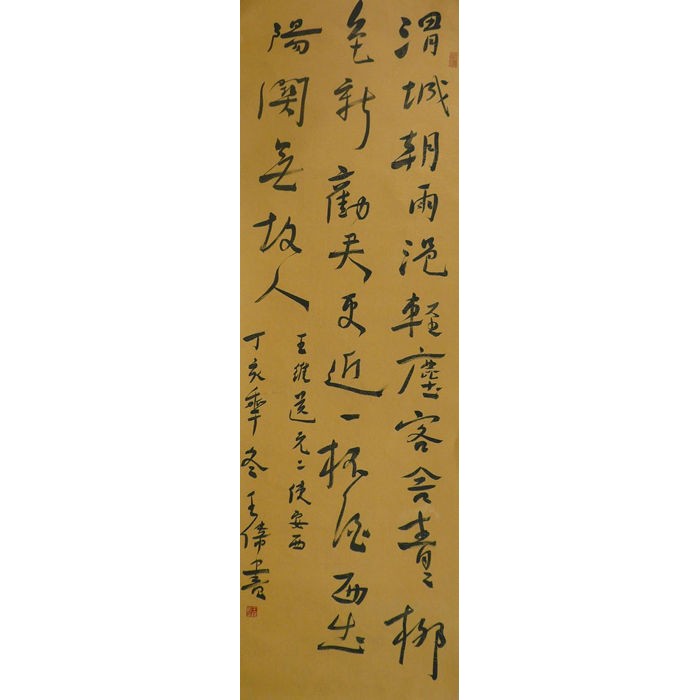 渭城朝雨浥輕塵客舍青々柳
色新勸君更近一杯酒西出
陽關無故人
王維送元二使安西
丁亥年冬王偉書